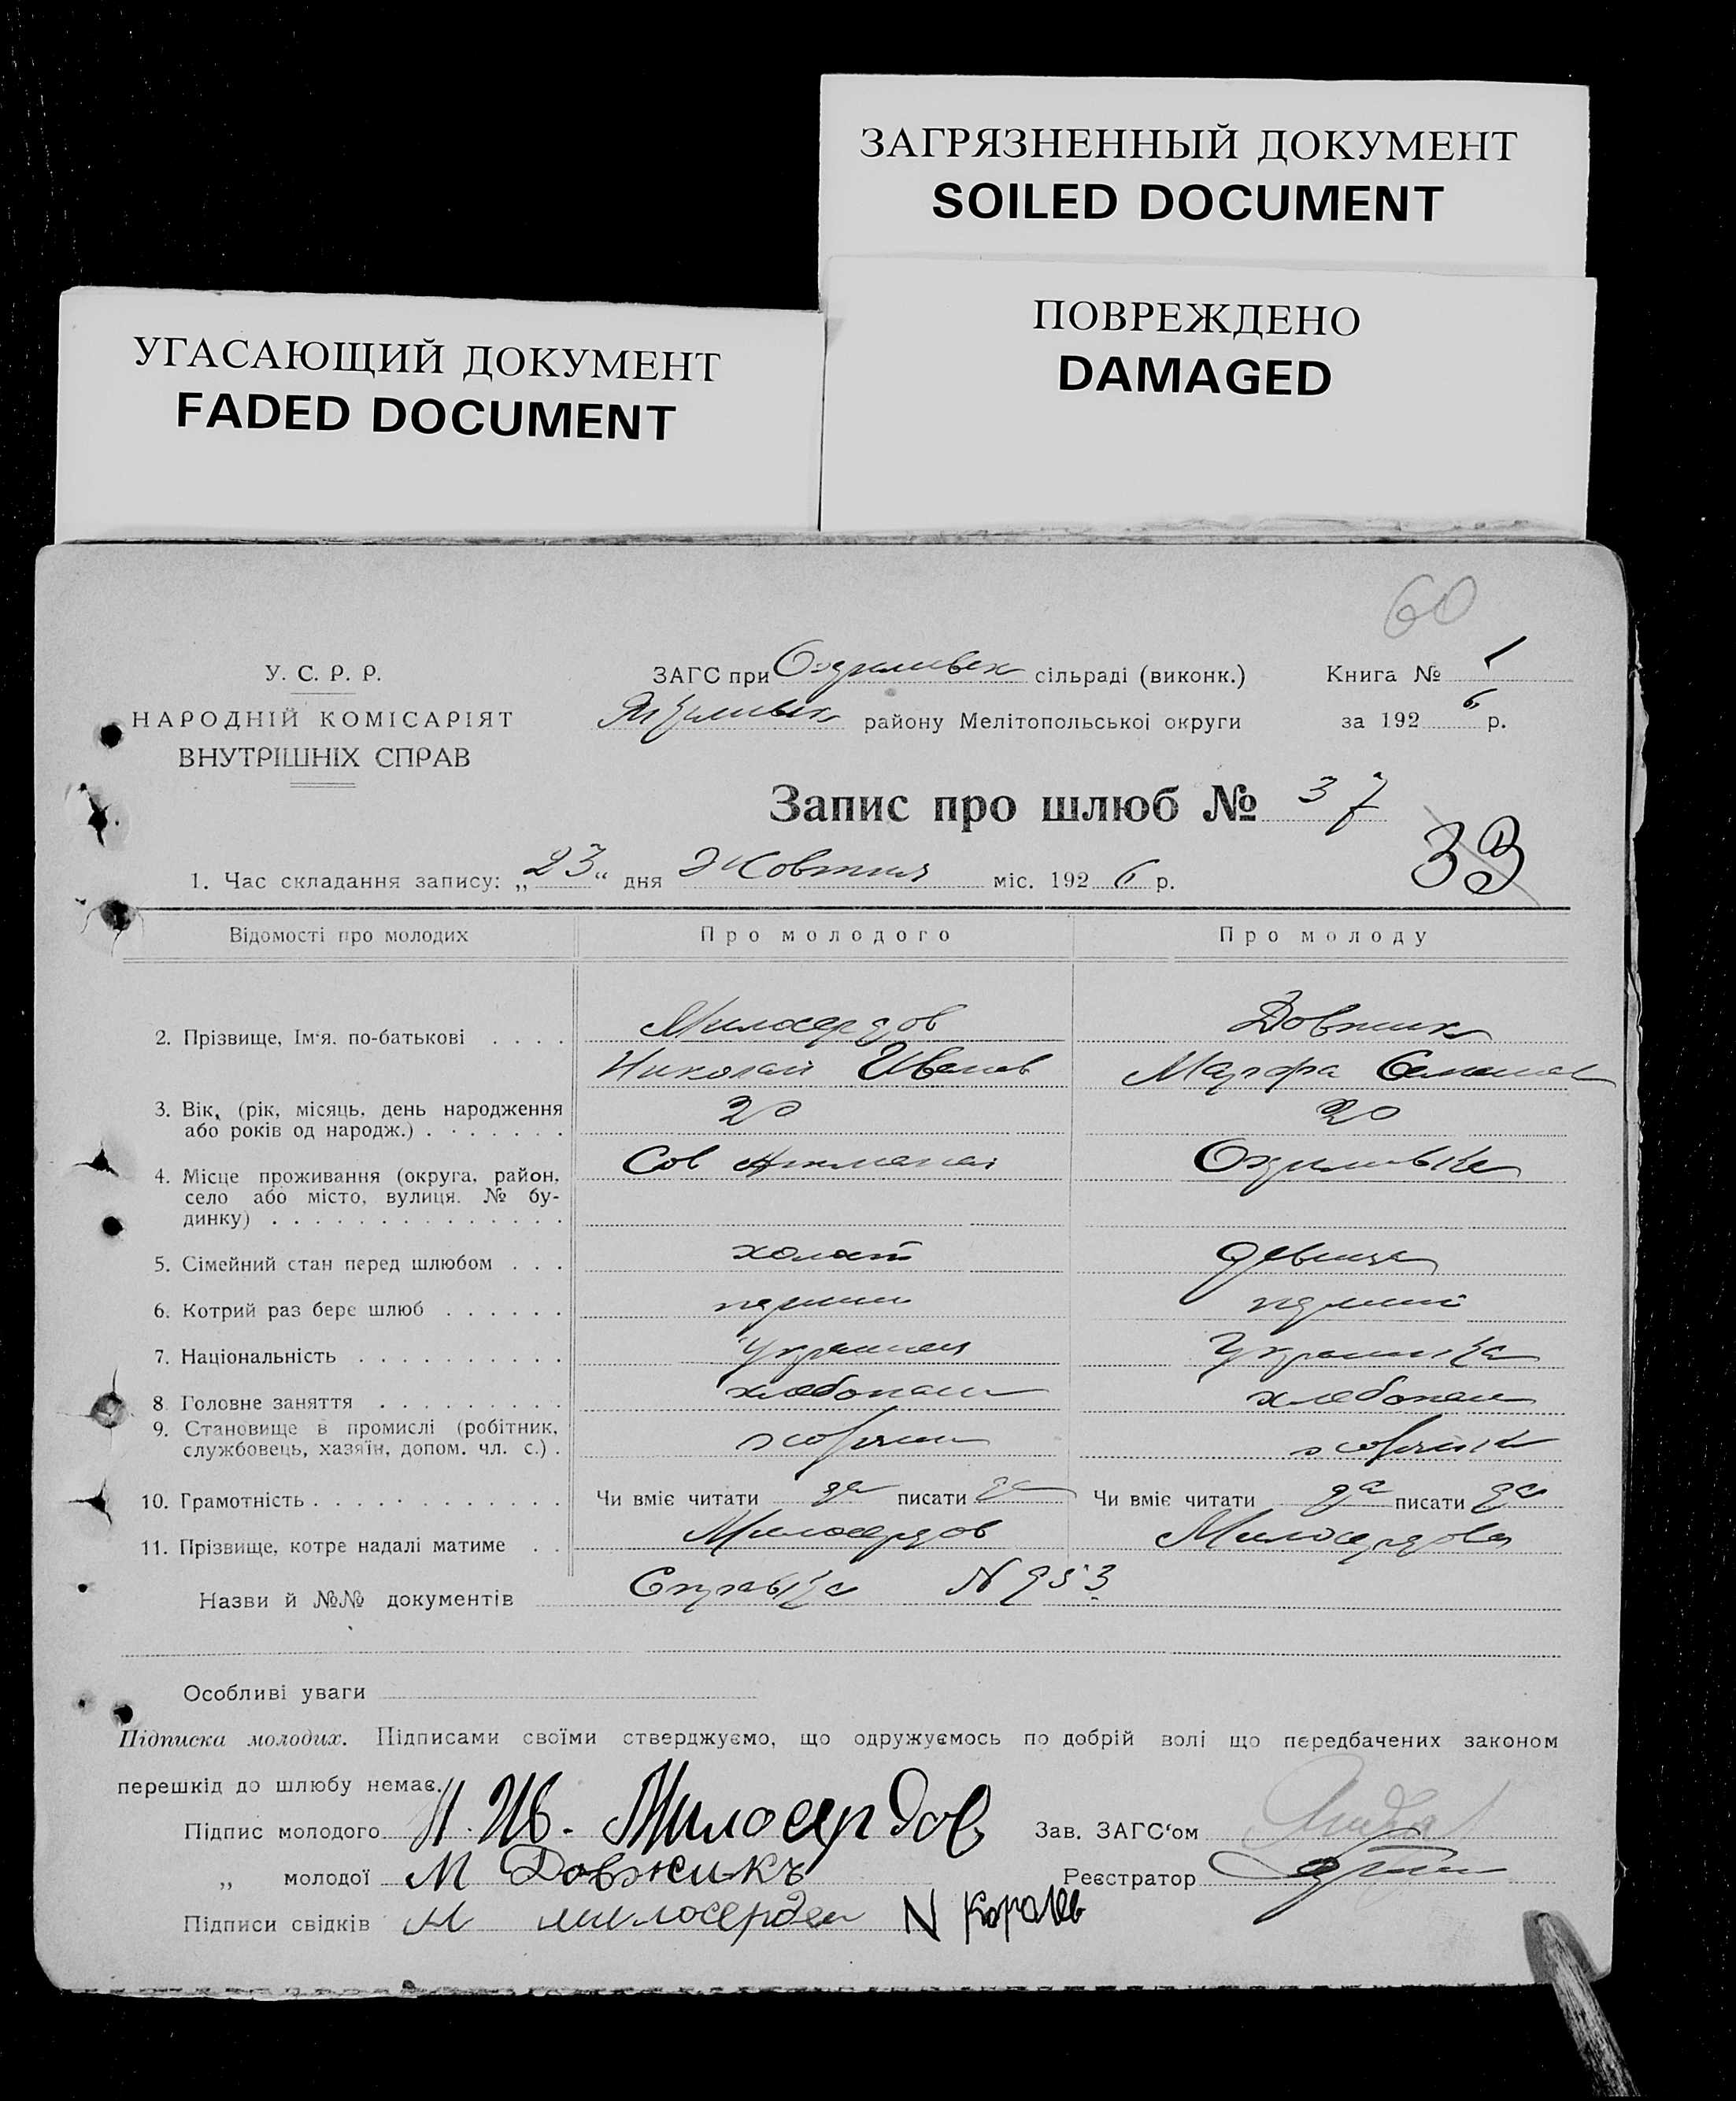 ЗАГРЯЗНЕННЫЙ ДОКУМЕНТ
SOILED DOCUMENT
ПОВРЕЖДЕНО
DAMAGED
УГАСАЮЩИЙ ДОКУМЕНТ
FADED DOCUMENT
60
У. С. Р. Р.
НАРОДНІЙ КОМІСАРІЯТ
ВНУТРІШНІХ СПРАВ
ЗАГС при сільраді (виконк.)
району Мелітопольської округи
Книга № 1
за 1926 р.
Запис про шлюб № 37
33
1. Час складання запису: „23“ дня Жовтня міс. 1926 р.
Відомості про молодих Про молодого Про молоду
2. Прізвище, Ім‘я. по-батькові . . . . Милосердов Довжик
Николай Иванов Марфа
3. Вік, (рік, місяць, день народження 20 20
або років од народж.) . . . . . . .
4. Місце проживання (округа, район, Сов
село або місто, вулиця. № бу-
динку) . . . . . . . . . . . . . .
5. Сімейний стан перед шлюбом . . . холост девица
6. Котрий раз бере шлюб . . . . . .
7. Національність . . . . . . . . . . Украинка
8. Головне заняття . . . . . . . . . хлебопаш хлебопаш
9. Становище в промислі (робітник,
службовець, хазяїн, допом. чл. с.) .
10. Грамотність . . . . . . . . . . . . Чи вміє читати да писати да Чи вміє читати да писати да
11. Прізвище, котре надалі матиме . . Милосердов Милосердова
Назви й №№ документів Справка N 953
Особливі уваги
Підписка молодих. Підписами своїми стверджуємо, що одружуємось по добрій волі що передбачених законом
перешкід до шлюбу немає.
Підпис молодого Н. Ив. Милосердов Зав. ЗАГС‘ом
„ молодої М Довжикъ Реєстратор
Підписи свідків М милосердов N Коралев